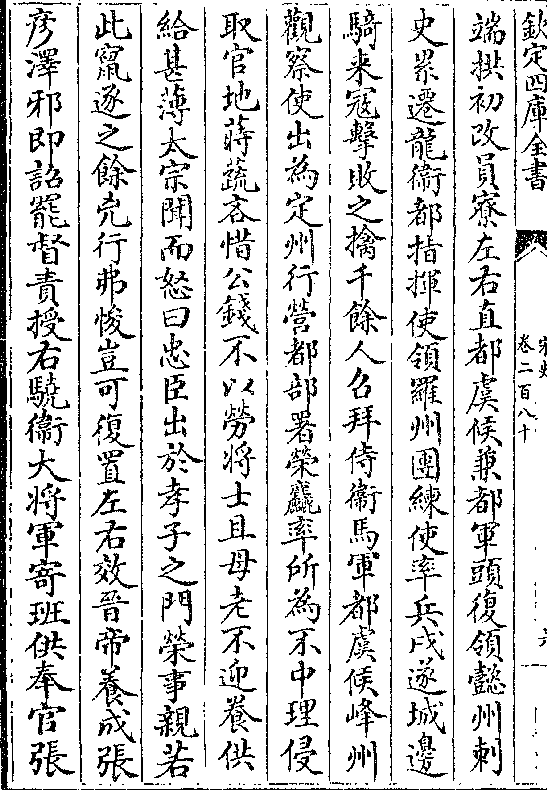 欽定四庫全書
宋史
卷二百八十
端拱初改員寮左右直都虞候兼都軍頭復領懿州刺
史累遷龍衞都指揮使領羅州團練使率兵戍遂城邊
騎来寇擊敗之擒千餘人召拜侍衞馬軍都虞候峰州
觀察使出為定州行營都部署榮麤率所為不中理侵
取官地蒔蔬吝惜公錢不以勞將士且母老不迎養供
給甚薄太宗聞而怒曰忠臣出於孝子之門榮事親若
此竄逐之餘兇行弗悛豈可復置左右效晉帝養成張
彦澤邪即詔罷督責授右驍衞大將軍寄班供奉官張